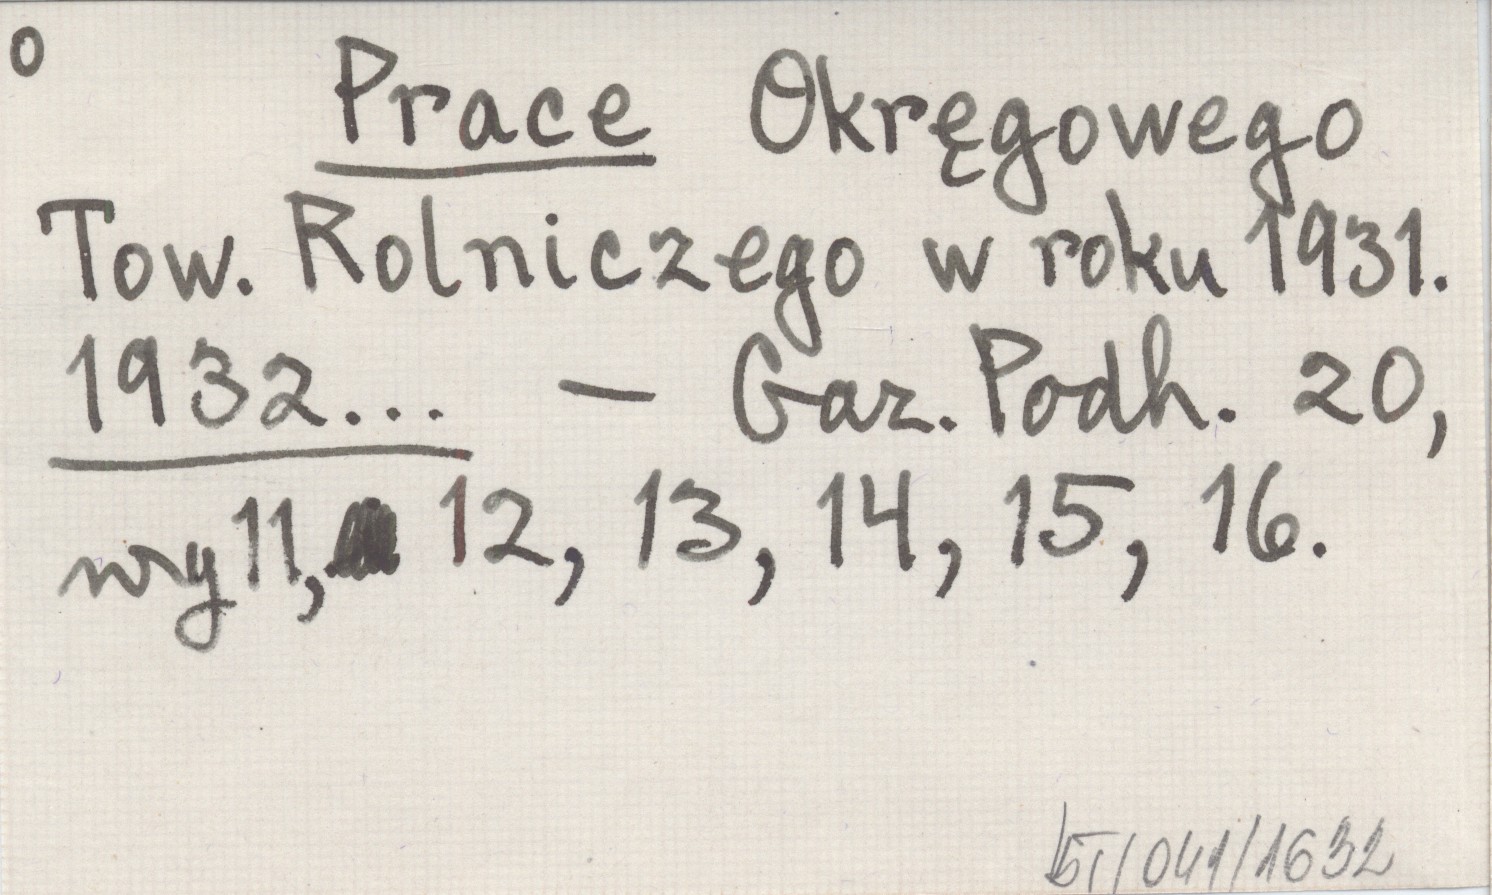 o
Prace Okręgowego
Tow. Rolniczego w roku 1931.
1932... — Gaz. Podh. 20,
nry 11, 12, 13, 14, 15, 16.
/041/1632